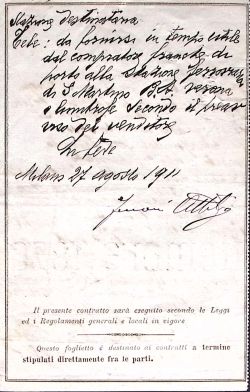 Stazione destinataria
Tele: da fornirsi in tempo utile
dal compratore franche di
porto alla Stazione ferrov.
di S. Martino B.A. Verona
e limitrofe secondo il preav
viso del venditore
In fede
Milano 27 agosto 1911
Il presente contratto sarà eseguito secondo le Leggi
ed i Regolamenti generali e locali in vigore
Questo foglietto è destinato ai contratti a termine
stipulati direttamente fra le parti.